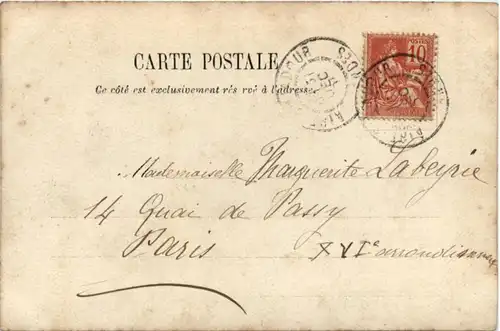 CARTE POSTALE
Ce côté est exclusivement rés rvé à l'adresse
10
Mademoiselle Marguerite Labeyrie
14 Quai de Passy
Paris XVIe arrondissement